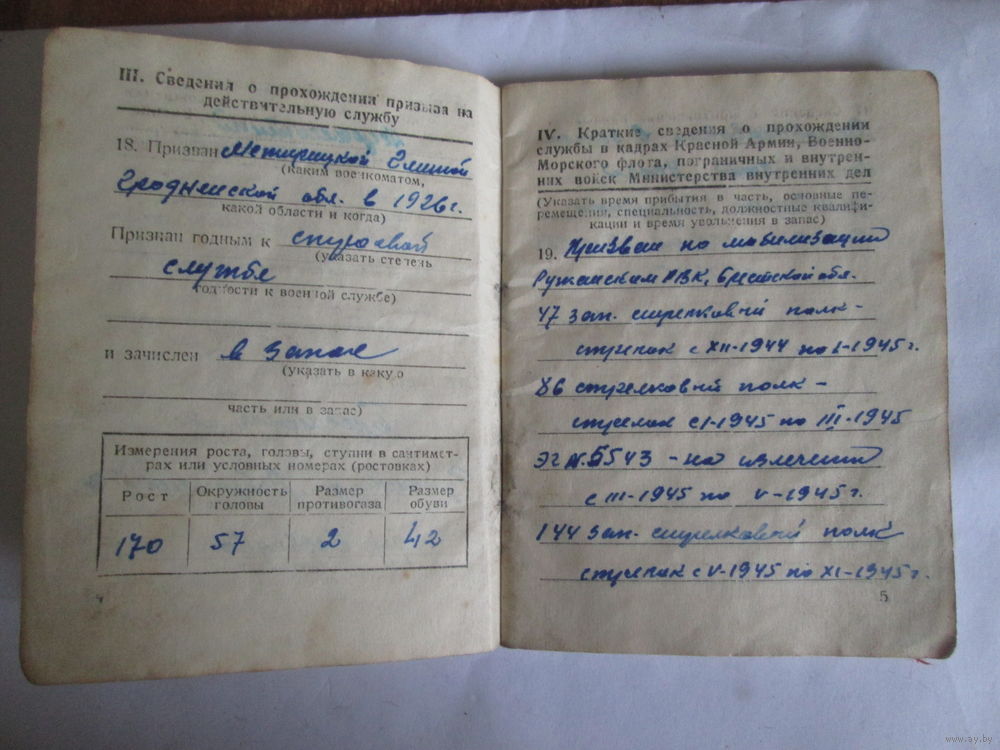 III. Сведения о прохождении призыва на
действительную службу
18. Призван
(каким военкоматом,
Гродненской обл. в 1926 г.
какой области и когда)
Признан годным к строевой
(указать степень
службе
годности к военной службе)
и зачислен в запас
(указать в какую
часть или в запас)
Измерения роста, головы, ступни в сантимет-
рах или условных номерах (ростовках)
Рост Окружность головы Размер противогаза Размер обуви
170 57 2 42
IV. Краткие сведения о прохождении
службы в кадрах Красной Армии, Военно-
Морского флота, пограничных и внутрен-
них войск Министерства внутренних дел
(Указать время прибытия в часть, основные пе-
ремещения, специальность, должностные квалифи-
кации и время увольнения в запас)
19. Призван по мобилизации
Ружанским РВК, Брестской обл.
47 зап. стрелковый полк -
стрелок с XII-1944 по I-1945 г.
86 стрелковый полк -
стрелок с I-1945 по III-1945
ЭГ № 5543 - на излечении
с III-1945 по V-1945 г.
144 зап. стрелковый полк
стрелок с V-1945 по XI-1945 г.
5
www.ay.by